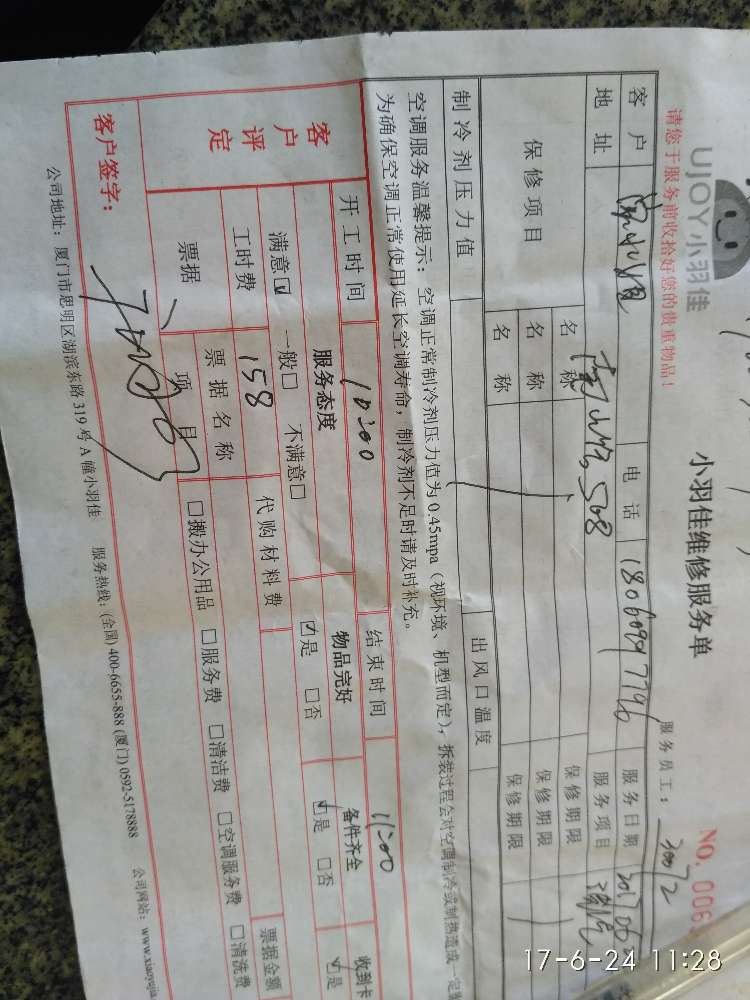 UJOY小羽佳
小羽佳维修服务单
NO. 006
请您于服务前收拾好您的贵重物品！
服务员工： 30072
客户 电话 服务日期
地址 508 服务项目
保修项目 名称 保修期限
名称 保修期限
名称 保修期限
制冷剂压力值 出风口温度
空调服务温馨提示：空调正常制冷剂压力值为0.45mpa（视环境、机型而定），拆装过程会对空调制冷或制热造成一定
为确保空调正常使用延长空调寿命，制冷剂不足时请及时补充。
客户评定
开工时间 10:00 结束时间 11:00
服务态度 物品完好 备件齐全 收到卡
满意☑ 一般□ 不满意□ ☑是 □否 ☑是 □否 ☑是
工时费 158 代购材料费
票据 票据名称 票据金额
项目 □搬办公用品 □服务费 □清洁费 □空调服务费 □清洗费
客户签字：
公司地址：厦门市思明区湖滨东路319号A幢小羽佳 服务热线：(全国) 400-6655-888 (厦门) 0592-5178888 公司网站：www.xiaoyujia.
17-6-24 11:28